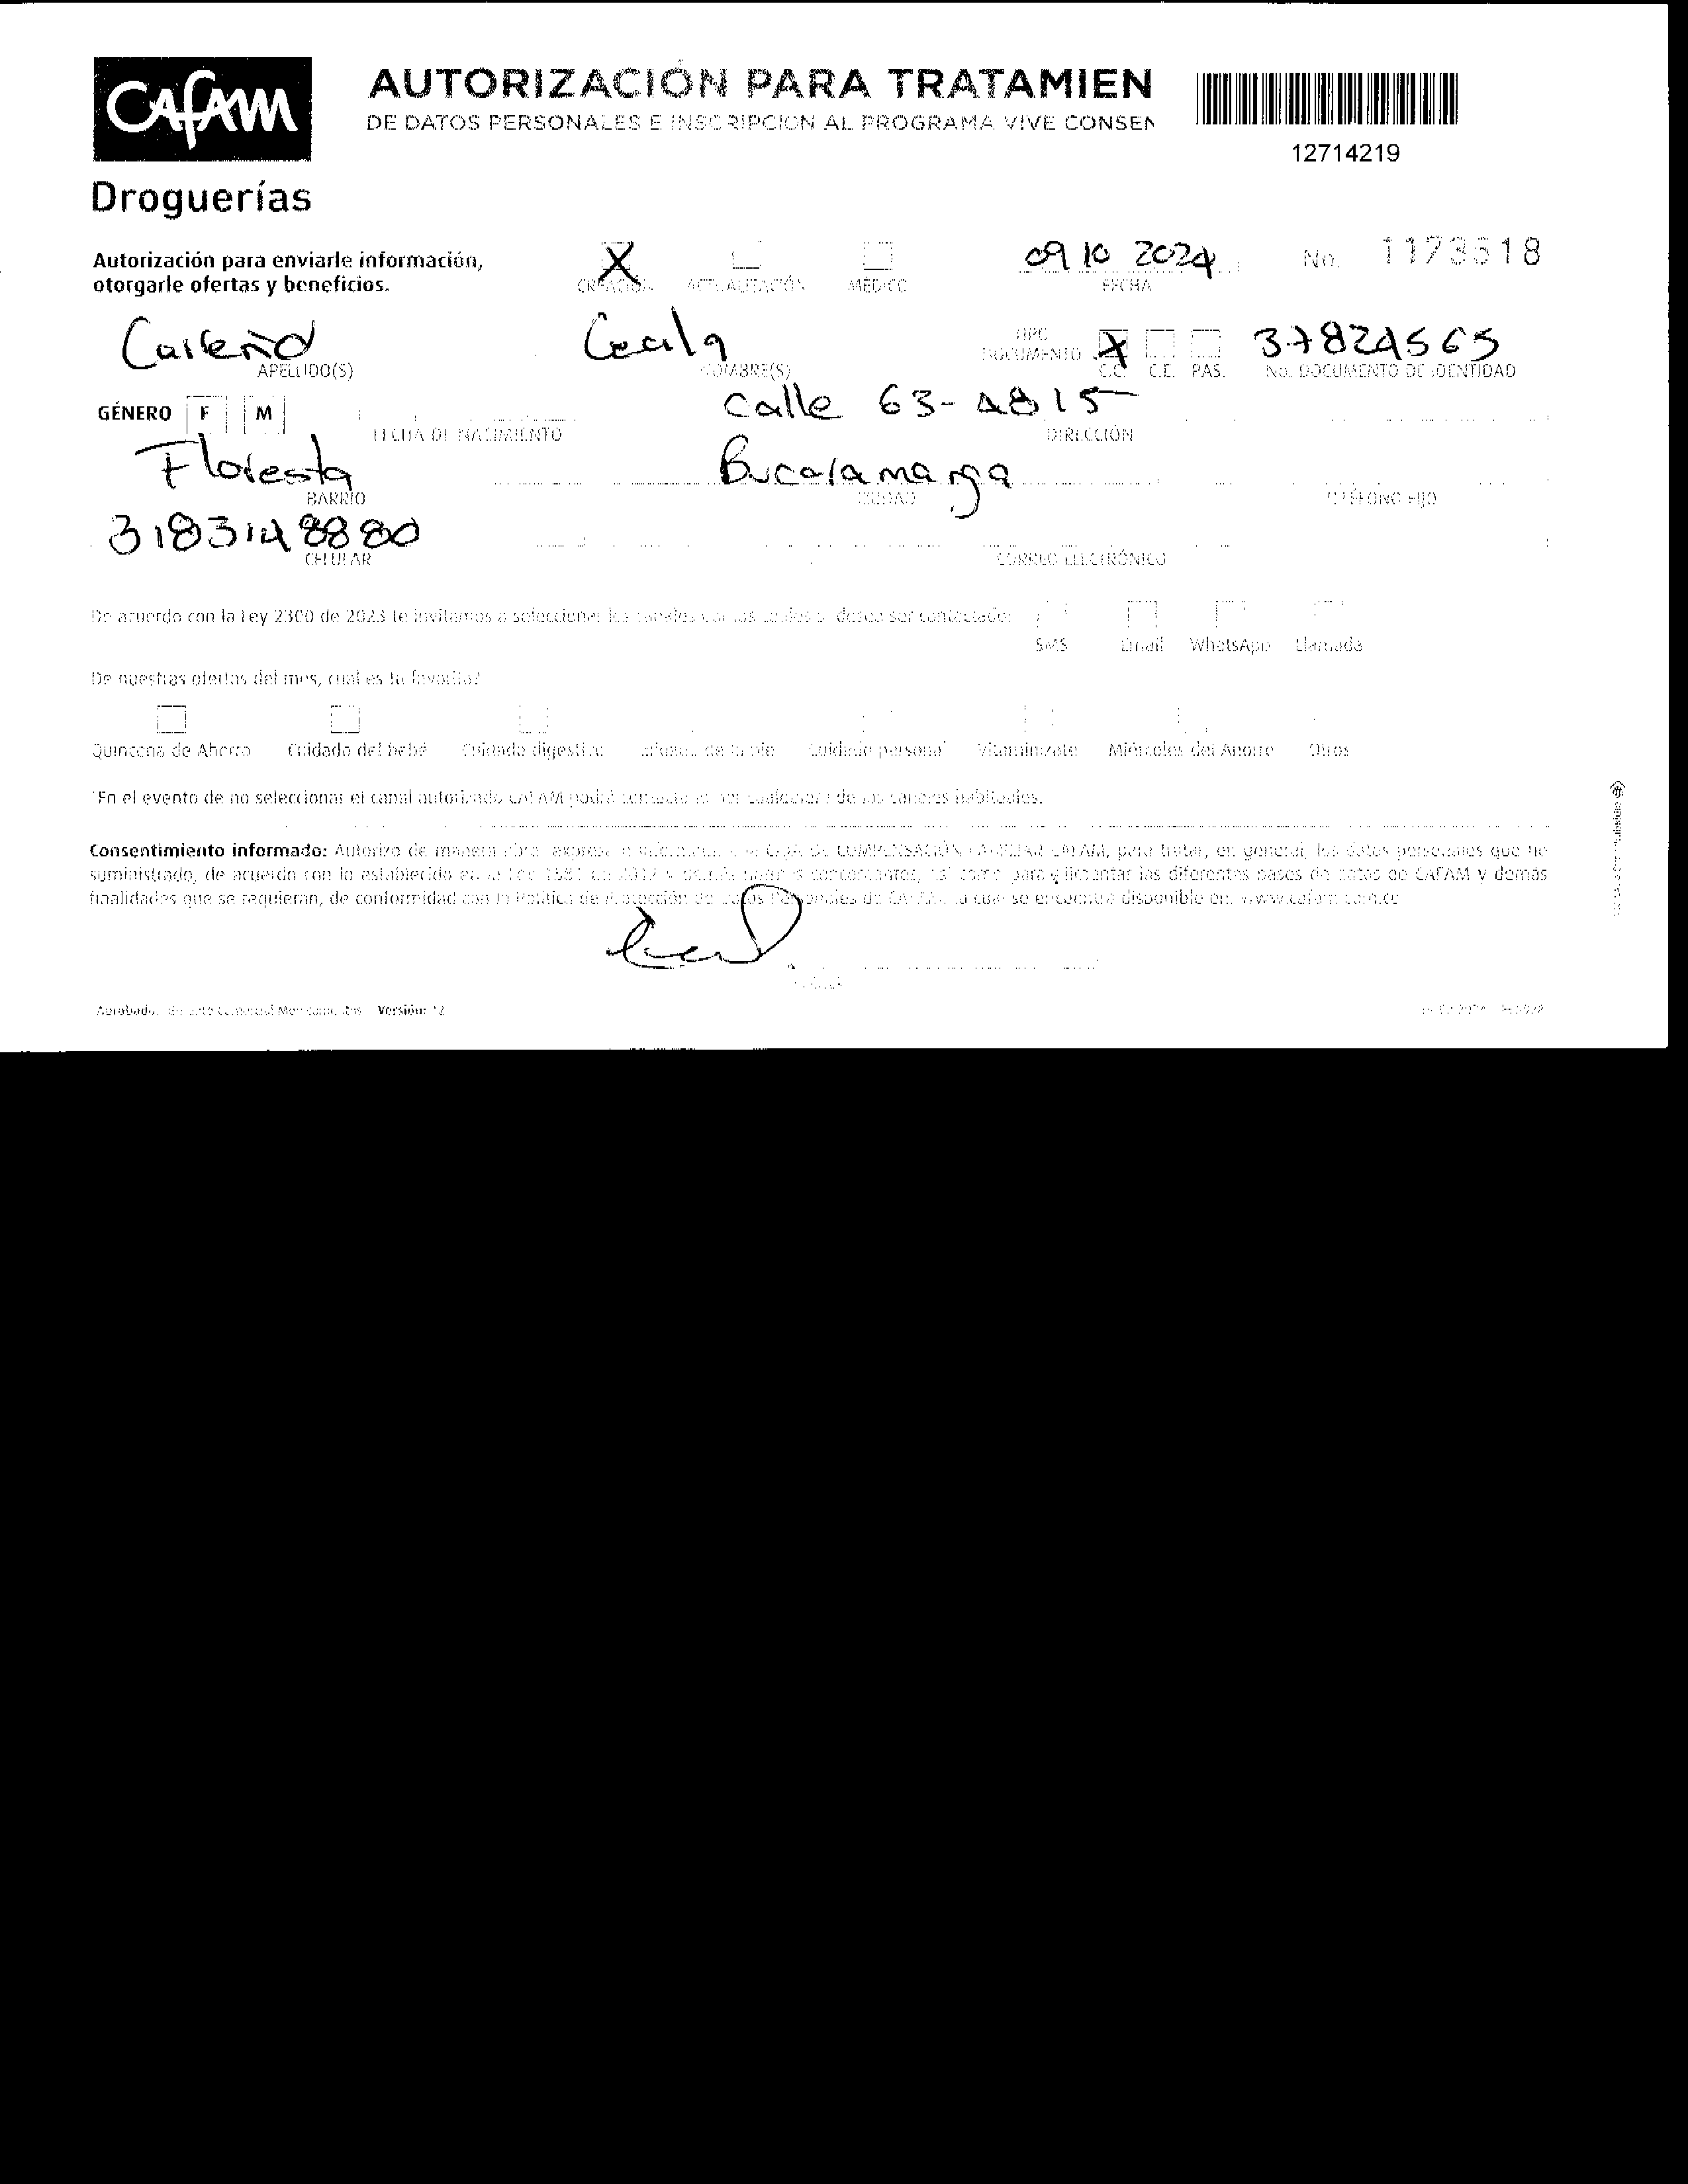 CAFAM
Droguerías
AUTORIZACIÓN PARA TRATAMIEN
DE DATOS PERSONALES E INSCRIPCIÓN AL PROGRAMA VIVE CONSEN
12714219
Autorización para enviarle información,
otorgarle ofertas y beneficios.
X CREACIÓN ACTUALIZACIÓN MÉDICO
09 10 2024
FECHA
No. 1173618
Carreño
APELLIDO(S)
Cecila
NOMBRE(S)
TIPO
DOCUMENTO X
C.C. C.E. PAS.
37824565
No. DOCUMENTO DE IDENTIDAD
GÉNERO F M
FECHA DE NACIMIENTO
Calle 63-4815
DIRECCIÓN
Floresta
BARRIO
Bucaramanga
CIUDAD
TELÉFONO FIJO
3183148880
CELULAR
CORREO ELECTRÓNICO
De acuerdo con la Ley 2300 de 2023 te invitamos a seleccionar los canales por los cuales deseas ser contactado:
SMS Email WhatsApp Llamada
De nuestras ofertas del mes, cual es tu favorita?
Quincena de Ahorro Cuidado del bebé Cuidado digestivo Cuidado personal Vitamínizate Miércoles del Ahorro Otros
*En el evento de no seleccionar el canal autorizado CAFAM podrá contactarlo por cualquiera de los canales habituales.
Consentimiento informado: Autorizo de manera libre, expresa e a la CAJA DE COMPENSACIÓN FAMILIAR CAFAM, para tratar, en general, los datos personales que he
suministrado, de acuerdo con lo establecido en la Ley 1581 de 2012 y demás normas concordantes, así como para alimentar las diferentes bases de datos de CAFAM y demás
finalidades que se requieran, de conformidad con la Política de Protección de Datos Personales de CAFAM, la cual se encuentra disponible en: www.cafam.com.co
FIRMA
Versión: 12